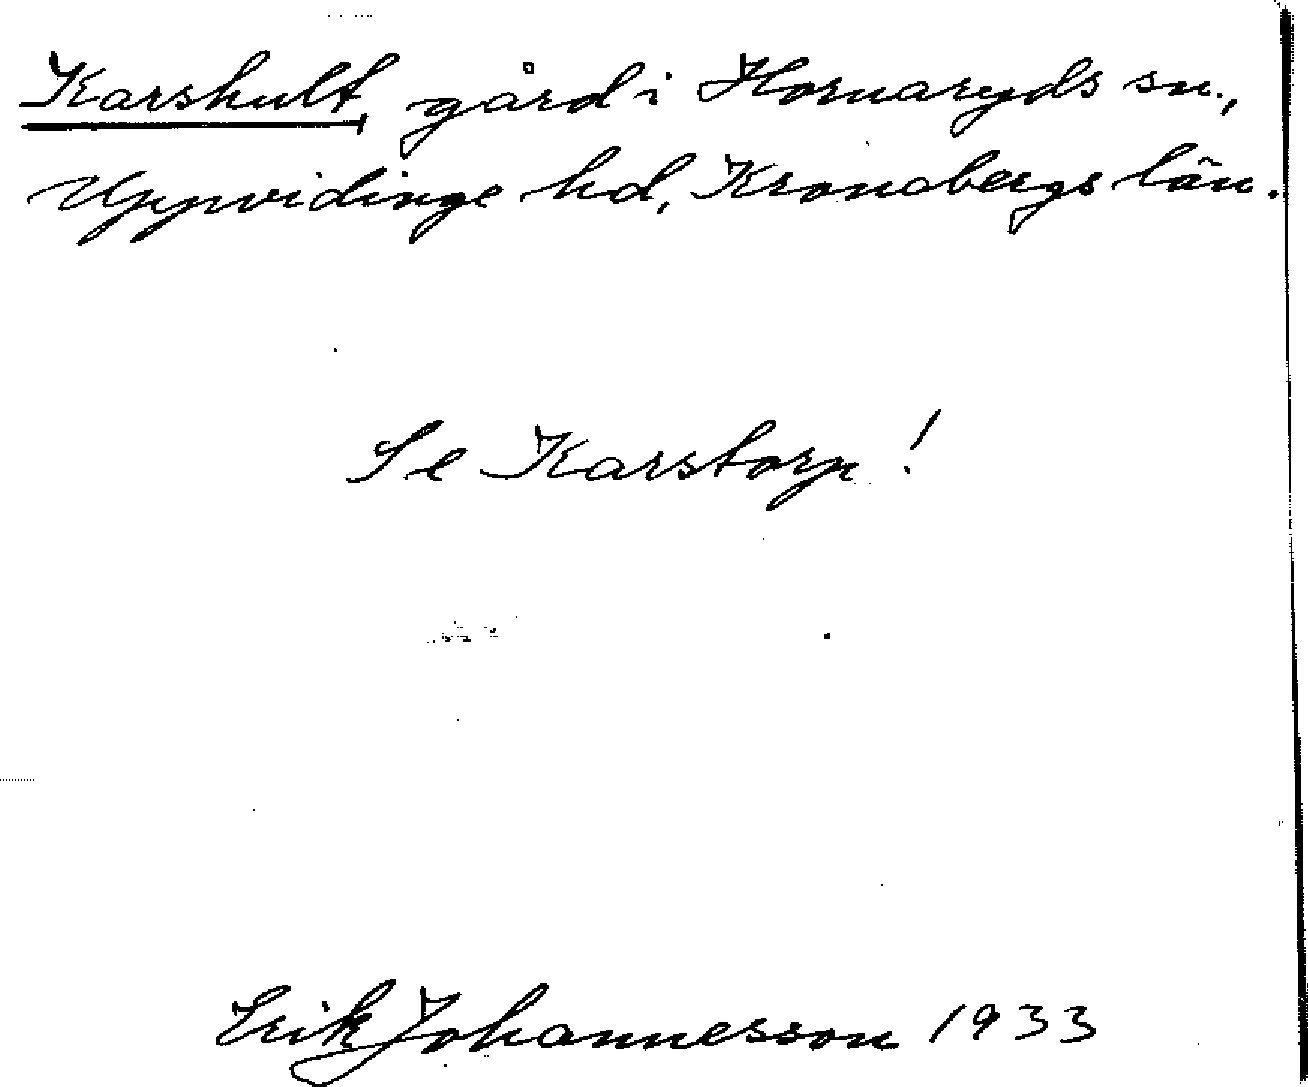 Karshult, gård i Hornaryds sn.,
Uppvidinge hd, Kronobergs län.
Se Karstorp!
Erik Johannesson 1933